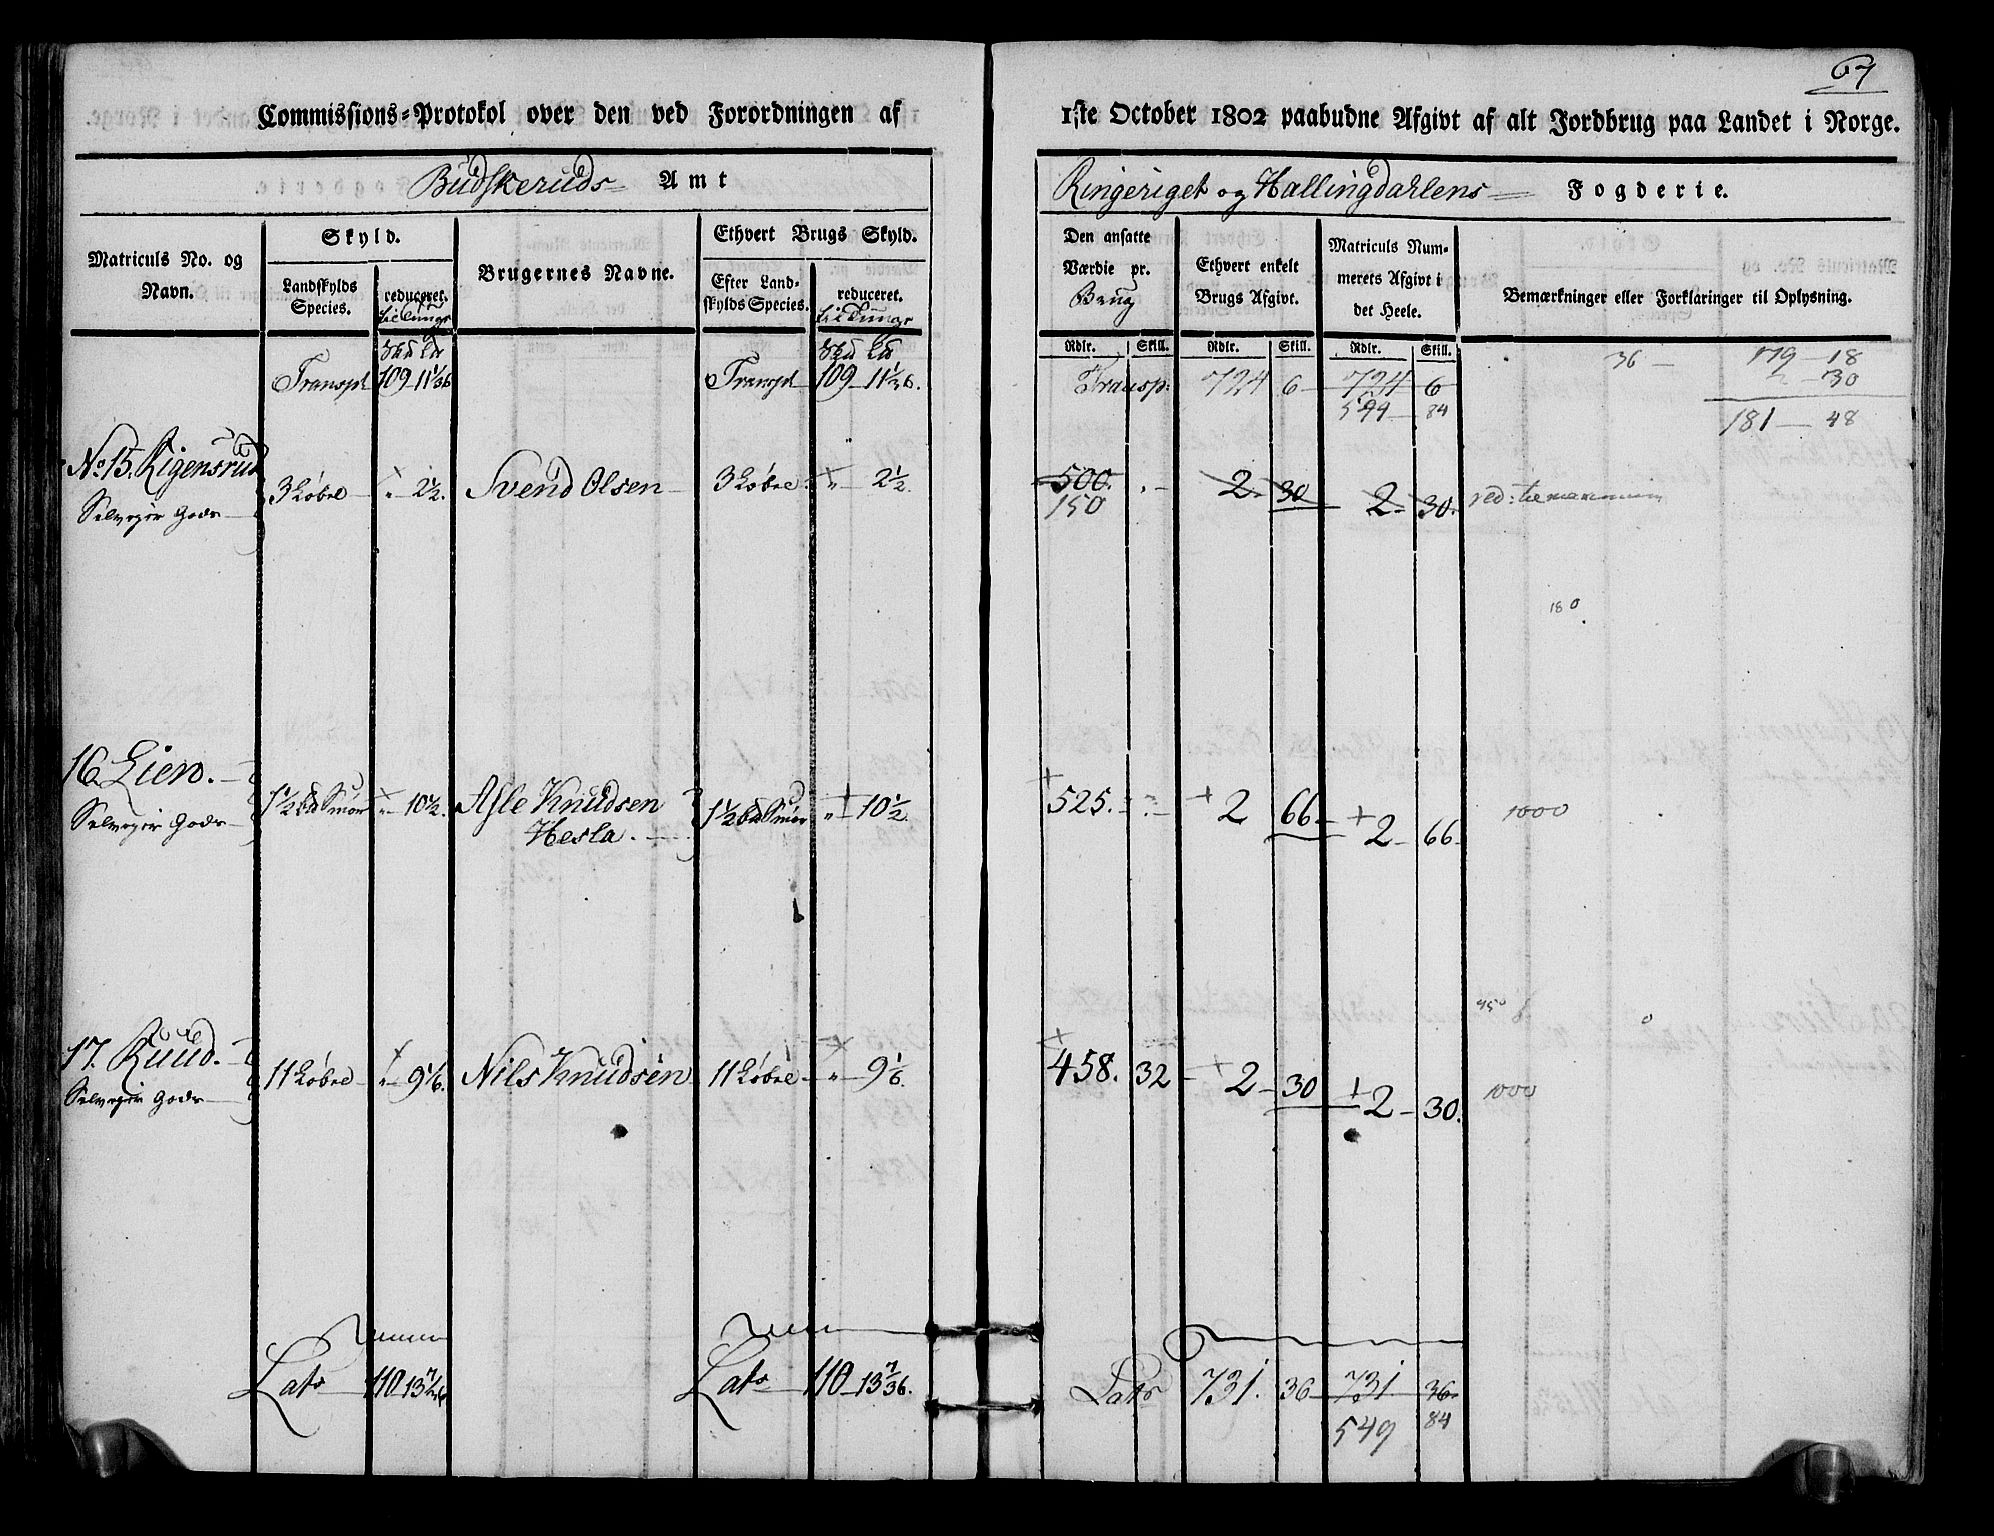 67
Commissions-Protokol over den ved Forordningen af 1ste October 1802 paabudne Afgivt af alt Jordbrug paa Landet i Norge.
Budskeruds Amt
Ringeriget og Hallingdahlens Fogderie.
Matriculs No. og Navn.
Skyld.
Landskylds Species.
reduceret. til Tunge
Brugernes Navne.
Ethvert Brugs Skyld.
Efter Landskylds Species.
reduceret. til Tunge
Den ansatte Værdie pr. Brug
Ethvert enkelt Brugs Afgivt.
Matriculs Nummerets Afgivt i det Heele.
Bemærkninger eller Forklaringer til Oplysning.
Rdlr. Skill. Rdlr. Skill. Rdlr. Skill.
Transpt 109 - 11 1/36 Transpt 109 - 11 1/36. Transp: 724 6 - 724 6
599 84
36 - 179 - 18
2 - 30
181 - 48
No 15. Rigensrud
Selveyer Gods
3 Løbre " 2 1/2. Svend Olsen 3 Løbre " 2 1/2. 500. 2 - 30 2 - 30. red:
150
180
16 Lien.
Selveyer Gods
1 1/2 Smør " 10 1/2. Asle Knudsen 1 1/2 Smør " 10 1/2. 525. 2 66. 2 - 66. 1000
Hesla.
17. Ruud.
Selveyer Gods
11 Løbre " 9 1/6. Nils Knudsen 11 Løbre " 9 1/6. 458. 32 - 2 - 30 2 - 30. 1000
Lats 110 13 7/36 Lats 110 - 13 7/36. Lats 731. 36 - 731 36
549 84